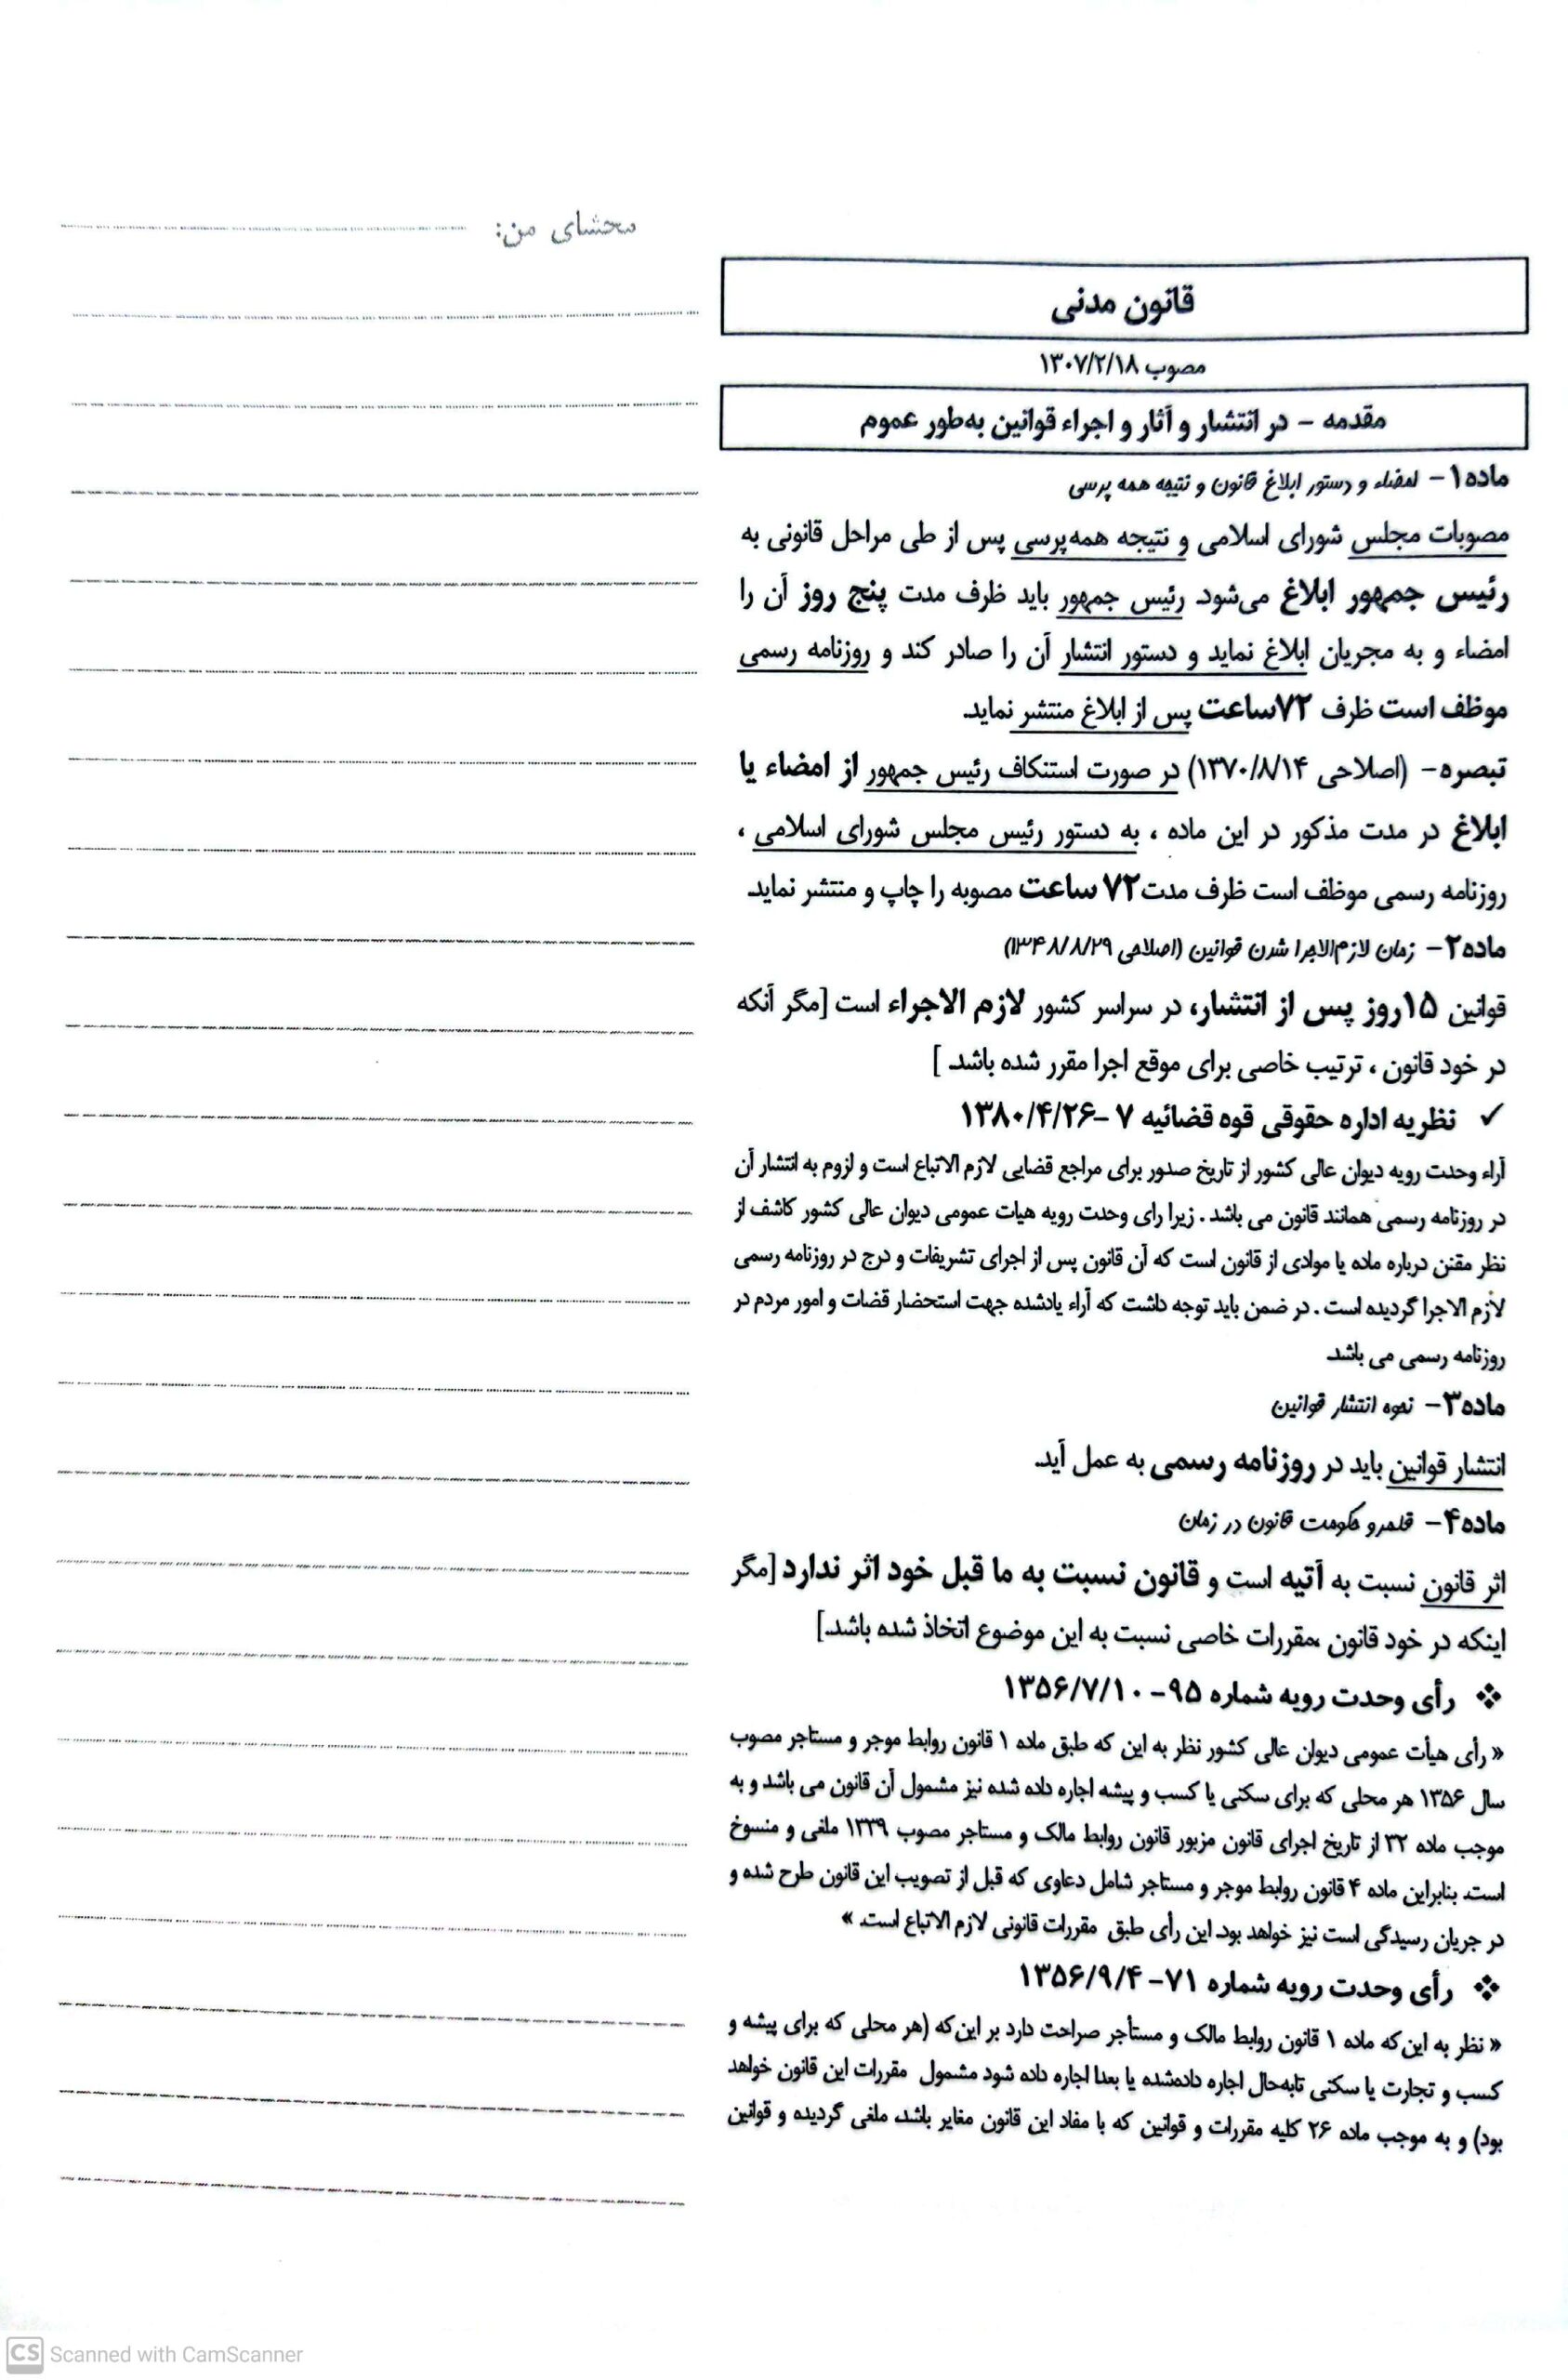 محشای من:
قانون مدنی
مصوب ۱۳۰۷/۲/۱۸
مقدمه – در انتشار و آثار و اجراء قوانین به‌طور عموم
ماده۱- امضاء و دستور ابلاغ قانون و نتیجه همه پرسی
مصوبات مجلس شورای اسلامی و نتیجه همه‌پرسی پس از طی مراحل قانونی به
رئیس جمهور ابلاغ می‌شود. رئیس جمهور باید ظرف مدت پنج روز آن را
امضاء و به مجریان ابلاغ نماید و دستور انتشار آن را صادر کند و روزنامه رسمی
موظف است ظرف ۷۲ساعت پس از ابلاغ منتشر نماید.
تبصره- (اصلاحی ۱۳۷۰/۸/۱۴) در صورت استنکاف رئیس جمهور از امضاء یا
ابلاغ در مدت مذکور در این ماده ، به دستور رئیس مجلس شورای اسلامی ،
روزنامه رسمی موظف است ظرف مدت۷۲ ساعت مصوبه را چاپ و منتشر نماید.
ماده۲- زمان لازم‌الاجرا شدن قوانین (اصلاحی ۱۳۴۸/۸/۲۹)
قوانین ۱۵روز پس از انتشار، در سراسر کشور لازم الاجراء است [مگر آنکه
در خود قانون ، ترتیب خاصی برای موقع اجرا مقرر شده باشد. ]
✓ نظریه اداره حقوقی قوه قضائیه ۷ -۱۳۸۰/۴/۲۶
آراء وحدت رویه دیوان عالی کشور از تاریخ صدور برای مراجع قضایی لازم الاتباع است و لزوم به انتشار آن
در روزنامه رسمی همانند قانون می باشد . زیرا رای وحدت رویه هیات عمومی دیوان عالی کشور کاشف از
نظر مقنن درباره ماده یا موادی از قانون است که آن قانون پس از اجرای تشریفات و درج در روزنامه رسمی
لازم الاجرا گردیده است . در ضمن باید توجه داشت که آراء یادشده جهت استحضار قضات و امور مردم در
روزنامه رسمی می باشد.
ماده۳- نحوه انتشار قوانین
انتشار قوانین باید در روزنامه رسمی به عمل آید.
ماده۴- قلمرو حکومت قانون در زمان
اثر قانون نسبت به آتیه است و قانون نسبت به ما قبل خود اثر ندارد [مگر
اینکه در خود قانون ،مقررات خاصی نسبت به این موضوع اتخاذ شده باشد.]
❖ رأی وحدت رویه شماره ۹۵- ۱۳۵۶/۷/۱۰
« رأی هیأت عمومی دیوان عالی کشور نظر به این که طبق ماده ۱ قانون روابط موجر و مستاجر مصوب
سال ۱۳۵۶ هر محلی که برای سکنی یا کسب و پیشه اجاره داده شده نیز مشمول آن قانون می باشد و به
موجب ماده ۳۲ از تاریخ اجرای قانون مزبور قانون روابط مالک و مستاجر مصوب ۱۳۳۹ ملغی و منسوخ
است. بنابراین ماده ۴ قانون روابط موجر و مستاجر شامل دعاوی که قبل از تصویب این قانون طرح شده و
در جریان رسیدگی است نیز خواهد بود. این رأی طبق مقررات قانونی لازم الاتباع است. »
❖ رأی وحدت رویه شماره ۷۱- ۱۳۵۶/۹/۴
« نظر به این‌که ماده ۱ قانون روابط مالک و مستأجر صراحت دارد بر این‌که (هر محلی که برای پیشه و
کسب و تجارت یا سکنی تابه‌حال اجاره داده‌شده یا بعدا اجاره داده شود مشمول مقررات این قانون خواهد
بود) و به موجب ماده ۲۶ کلیه مقررات و قوانین که با مفاد این قانون مغایر باشد، ملغی گردیده و قوانین
CS Scanned with CamScanner